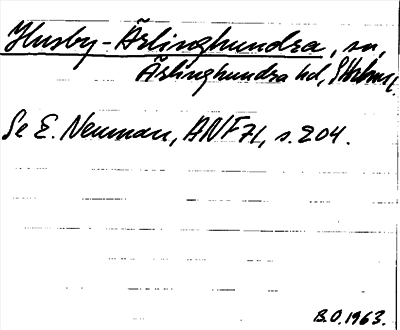 Husby-Ärlinghundra, sn,
Ärlinghundra hd, Sthlms l.
Se E. Neuman, ANF 71, s. 204.
B.O. 1963.